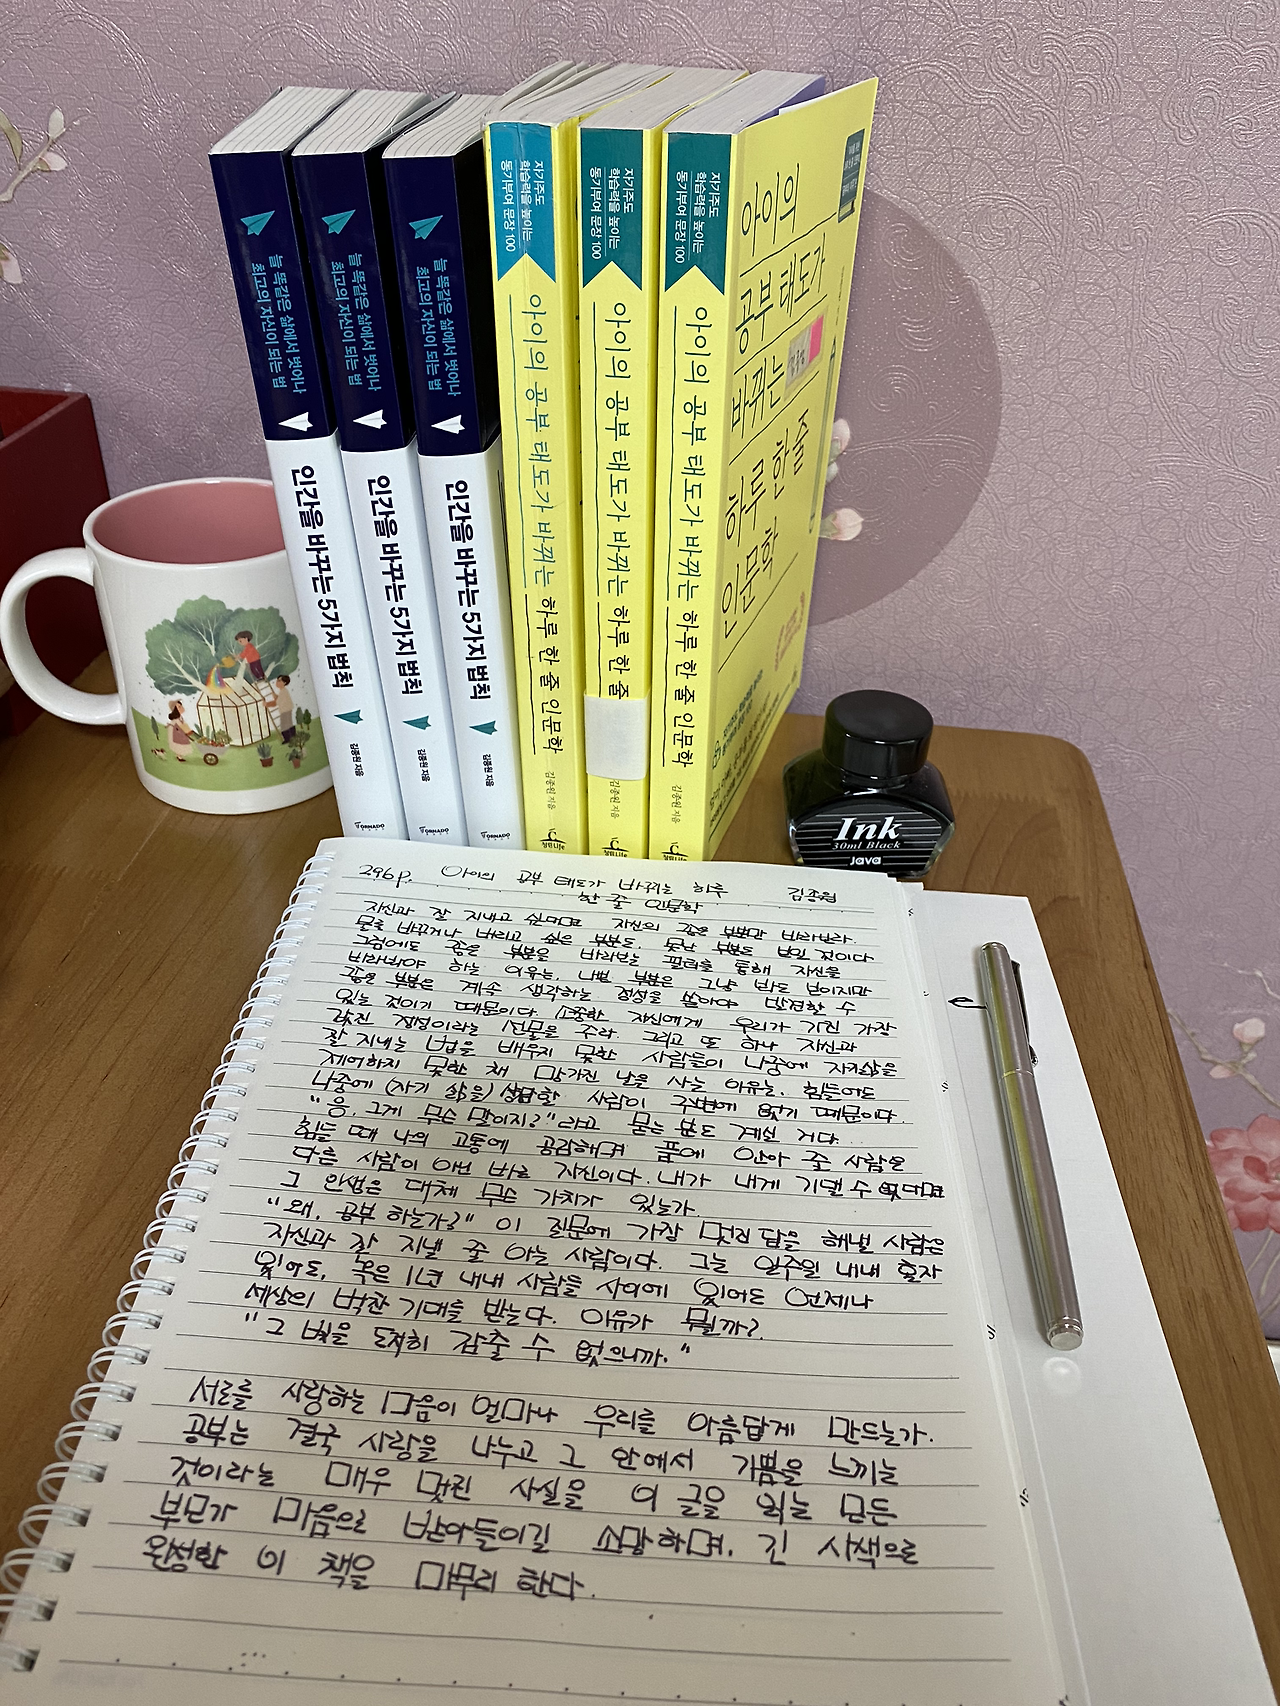 늘 똑같은 삶에서 벗어나
최고의 자신이 되는 법
인간을 바꾸는 5가지 법칙
김종원 지음
TORNADO
늘 똑같은 삶에서 벗어나
최고의 자신이 되는 법
인간을 바꾸는 5가지 법칙
김종원 지음
TORNADO
늘 똑같은 삶에서 벗어나
최고의 자신이 되는 법
인간을 바꾸는 5가지 법칙
김종원 지음
TORNADO
자기주도
학습력을 높이는
동기부여 문장 100
아이의 공부 태도가 바뀌는 하루 한 줄 인문학
김종원 지음
자기주도
학습력을 높이는
동기부여 문장 100
아이의 공부 태도가 바뀌는 하루 한 줄
김종원 지음
자기주도
학습력을 높이는
동기부여 문장 100
아이의 공부 태도가 바뀌는 하루 한 줄 인문학
김종원 지음
아이의
공부 태도가
바뀌는
하루 한 줄
인문학
Ink
30ml Black
java
296p. 아이의 공부 태도가 바뀌는 하루 김종원
한 줄 인문학
자신과 잘 지내고 싶다면 자신의 좋은 부분만 바라보라.
물론 바꾸거나 버리고 싶은 부분도, 못난 부분도 보일 것이다
그럼에도 좋은 부분을 바라보는 필터를 통해 자신을
바라봐야 하는 이유는, 나쁜 부분은 그냥 봐도 보이지만
좋은 부분은 계속 생각하는 정성을 쏟아야 발견할 수
있는 것이기 때문이다. 소중한 자신에게 우리가 가진 가장
값진 정성이라는 선물을 주라. 그리고 또 하나 자신과
잘 지내는 법을 배우지 못한 사람들이 나중에 자기삶을
제어하지 못한 채 망가진 날을 사는 이유는, 힘들어도
나중에 (자기 삶을) 상담할 사람이 주변에 없기 때문이다.
"응, 그게 무슨 말이지?"라고 묻는 분도 계실 거다.
힘들 때 나의 고통에 공감하며 품에 안아 줄 사람은
다른 사람이 아닌 바로 자신이다. 내가 내게 기댈 수 없다면
그 인생은 대체 무슨 가치가 있는가.
"왜, 공부 하는가?" 이 질문에 가장 멋진 답을 해낼 사람은
자신과 잘 지낼 줄 아는 사람이다. 그는 일주일 내내 혼자
있어도, 혹은 1년 내내 사람들 사이에 있어도 언제나
세상의 벅찬 기대를 받는다. 이유가 뭘까?
"그 빛을 도저히 감출 수 없으니까."
서로를 사랑하는 마음이 얼마나 우리를 아름답게 만드는가.
공부는 결국 사랑을 나누고 그 안에서 기쁨을 느끼는
것이라는 매우 멋진 사실을 이 글을 읽는 모든
부모가 마음으로 받아들이길 소망하며, 긴 사색으로
완성한 이 책을 마무리 한다.